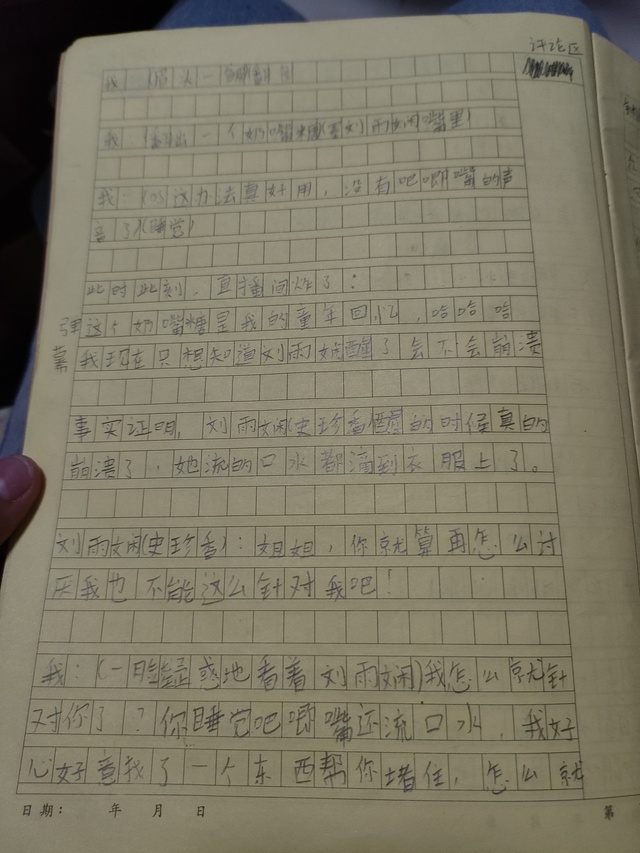 评论区
我:
我: 一个奶嘴糖 刘雨娴嘴里)
我: 这办法真好用,没有吧唧嘴的声
音了(睡觉)
此时此刻,直播间炸了:
弹 这个奶嘴糖是我的童年回忆,哈哈哈
幕 我现在只想知道刘雨娴醒了会不会崩溃
事实证明,刘雨娴(史珍香)醒的时候真的
崩溃了,她流的口水都滴到衣服上了。
刘雨娴(史珍香):姐姐,你就算再怎么讨
厌我也不能这么针对我吧!
我:(一脸疑惑地看着刘雨娴)我怎么就针
对你了?你睡觉吧唧嘴还流口水,我好
心好意找了一个东西帮你堵住,怎么就
日期: 年 月 日 第